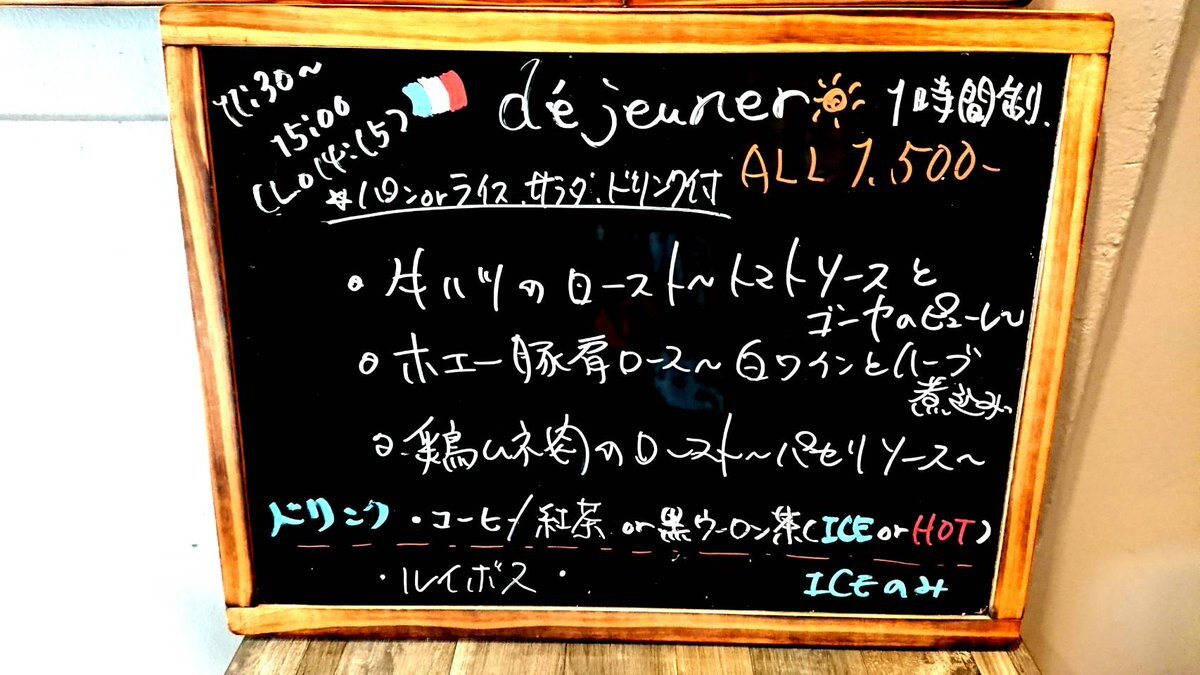 11:30~
15:00
(L.o 14:15)
déjeuner 1時間制.
ALL 1.500-
☆パンorライス.サラダ.ドリンク付
・牛ハツのロースト~トマトソースと
ゴーヤのピューレ~
・ホエー豚肩ロース~白ワインとハーブ
煮込み~
・鶏ムネ肉のロースト~パセリソース~
ドリンク ・コーヒー/紅茶 or 黒ウーロン茶(ICE or HOT)
・ルイボス・ ICEのみ